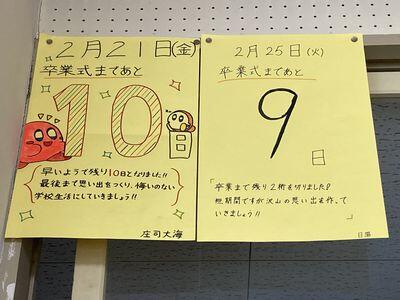 2月21日(金)
卒業式まであと
10
日
早いようで残り10日となりました!!
最後まで思い出をつくり、悔いのない
学校生活にしていきましょう!!
庄司大海
2月25日(火)
卒業式まであと
9
日
「卒業まで残り2桁を切りました!
短期間ですが沢山の思い出を作って
いきましょう!!」